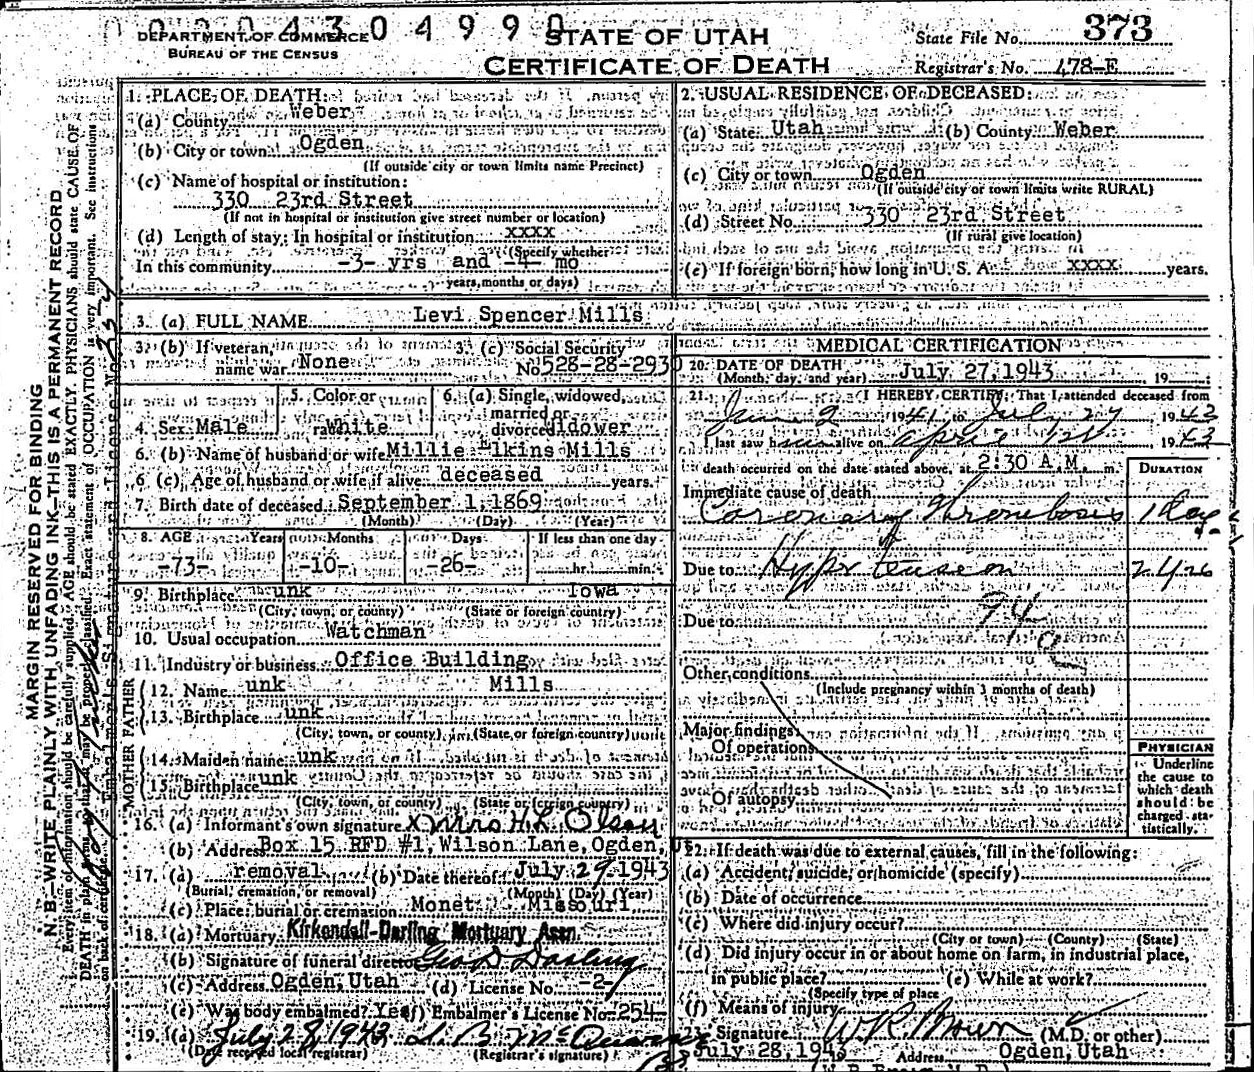 0 4 3 0 4 9 9 0
DEPARTMENT OF COMMERCE
BUREAU OF THE CENSUS
STATE OF UTAH
CERTIFICATE OF DEATH
State File No. 373
Registrar's No. 478-E
MARGIN RESERVED FOR BINDING
N. B.—WRITE PLAINLY WITH UNFADING INK—THIS IS A PERMANENT RECORD
Every item of information should be carefully supplied. AGE should be stated EXACTLY. PHYSICIANS should state CAUSE OF
DEATH in plain terms so that it may be properly classified. Exact statement of OCCUPATION is very important. See instructions
on back of certificate.
1. PLACE OF DEATH:
(a) County Weber
(b) City or town Ogden
(If outside city or town limits name Precinct)
(c) Name of hospital or institution:
330 23rd Street
(If not in hospital or institution give street number or location)
(d) Length of stay: In hospital or institution xxxx
(Specify whether
In this community -3- yrs and -4- mo
years, months or days)
2. USUAL RESIDENCE OF DECEASED:
(a) State Utah (b) County Weber
(c) City or town Ogden
(If outside city or town limits write RURAL)
(d) Street No. 330 23rd Street
(If rural give location)
(e) If foreign born, how long in U. S. A. xxxx years.
3. (a) FULL NAME Levi Spencer Mills
3. (b) If veteran, name war None
3. (c) Social Security No. 528-28-2930
4. Sex Male
5. Color or race White
6. (a) Single, widowed, married or divorced Widower
6. (b) Name of husband or wife Millie Elkins Mills
6 (c) Age of husband or wife if alive deceased years.
7. Birth date of deceased September 1, 1869
(Month) (Day) (Year)
8. AGE Years Months Days If less than one day
-73- -10- -26- hr. min.
9. Birthplace unk Iowa
(City, town, or county) (State or foreign country)
10. Usual occupation Watchman
11. Industry or business Office Building
FATHER
12. Name unk Mills
13. Birthplace unk
(City, town, or county) (State or foreign country)
MOTHER
14. Maiden name unk
15. Birthplace unk
(City, town, or county) (State or foreign country)
16. (a) Informant's own signature x Mrs H. L. Olson
(b) Address Box 15 RFD #1, Wilson Lane, Ogden, U
17. (a) removal (b) Date thereof July 29 1943
(Burial, cremation, or removal) (Month) (Day) (Year)
(c) Place: burial or cremation Monet Missouri
18. (a) Mortuary Kirkendall-Darling Mortuary Assn.
(b) Signature of funeral director Geo D Darling
(c) Address Ogden, Utah (d) License No. -2-
(e) Was body embalmed? Yes (f) Embalmer's License No. 254
19. (a) July 28, 1943
(Date received local registrar) (Registrar's signature)
MEDICAL CERTIFICATION
20. DATE OF DEATH
(Month, day, and year) July 27, 1943 19
21. I HEREBY CERTIFY, That I attended deceased from
June 2 1941 to July 27 1943
I last saw him alive on April 1943
death occurred on the date stated above, at 2:30 A.M. m.
DURATION
Immediate cause of death
Coronary Thrombosis 1 Day
Due to Hypertension
Due to 94a
Other conditions
(Include pregnancy within 3 months of death)
Major findings:
Of operations
Of autopsy
PHYSICIAN
Underline
the cause to
which death
should be
charged sta-
tistically.
22. If death was due to external causes, fill in the following:
(a) Accident, suicide, or homicide (specify)
(b) Date of occurrence
(c) Where did injury occur?
(City or town) (County) (State)
(d) Did injury occur in or about home on farm, in industrial place,
in public place? (e) While at work?
(Specify type of place
(f) Means of injury
23. Signature W R Brown (M.D. or other)
July 28, 1943 Address Ogden, Utah